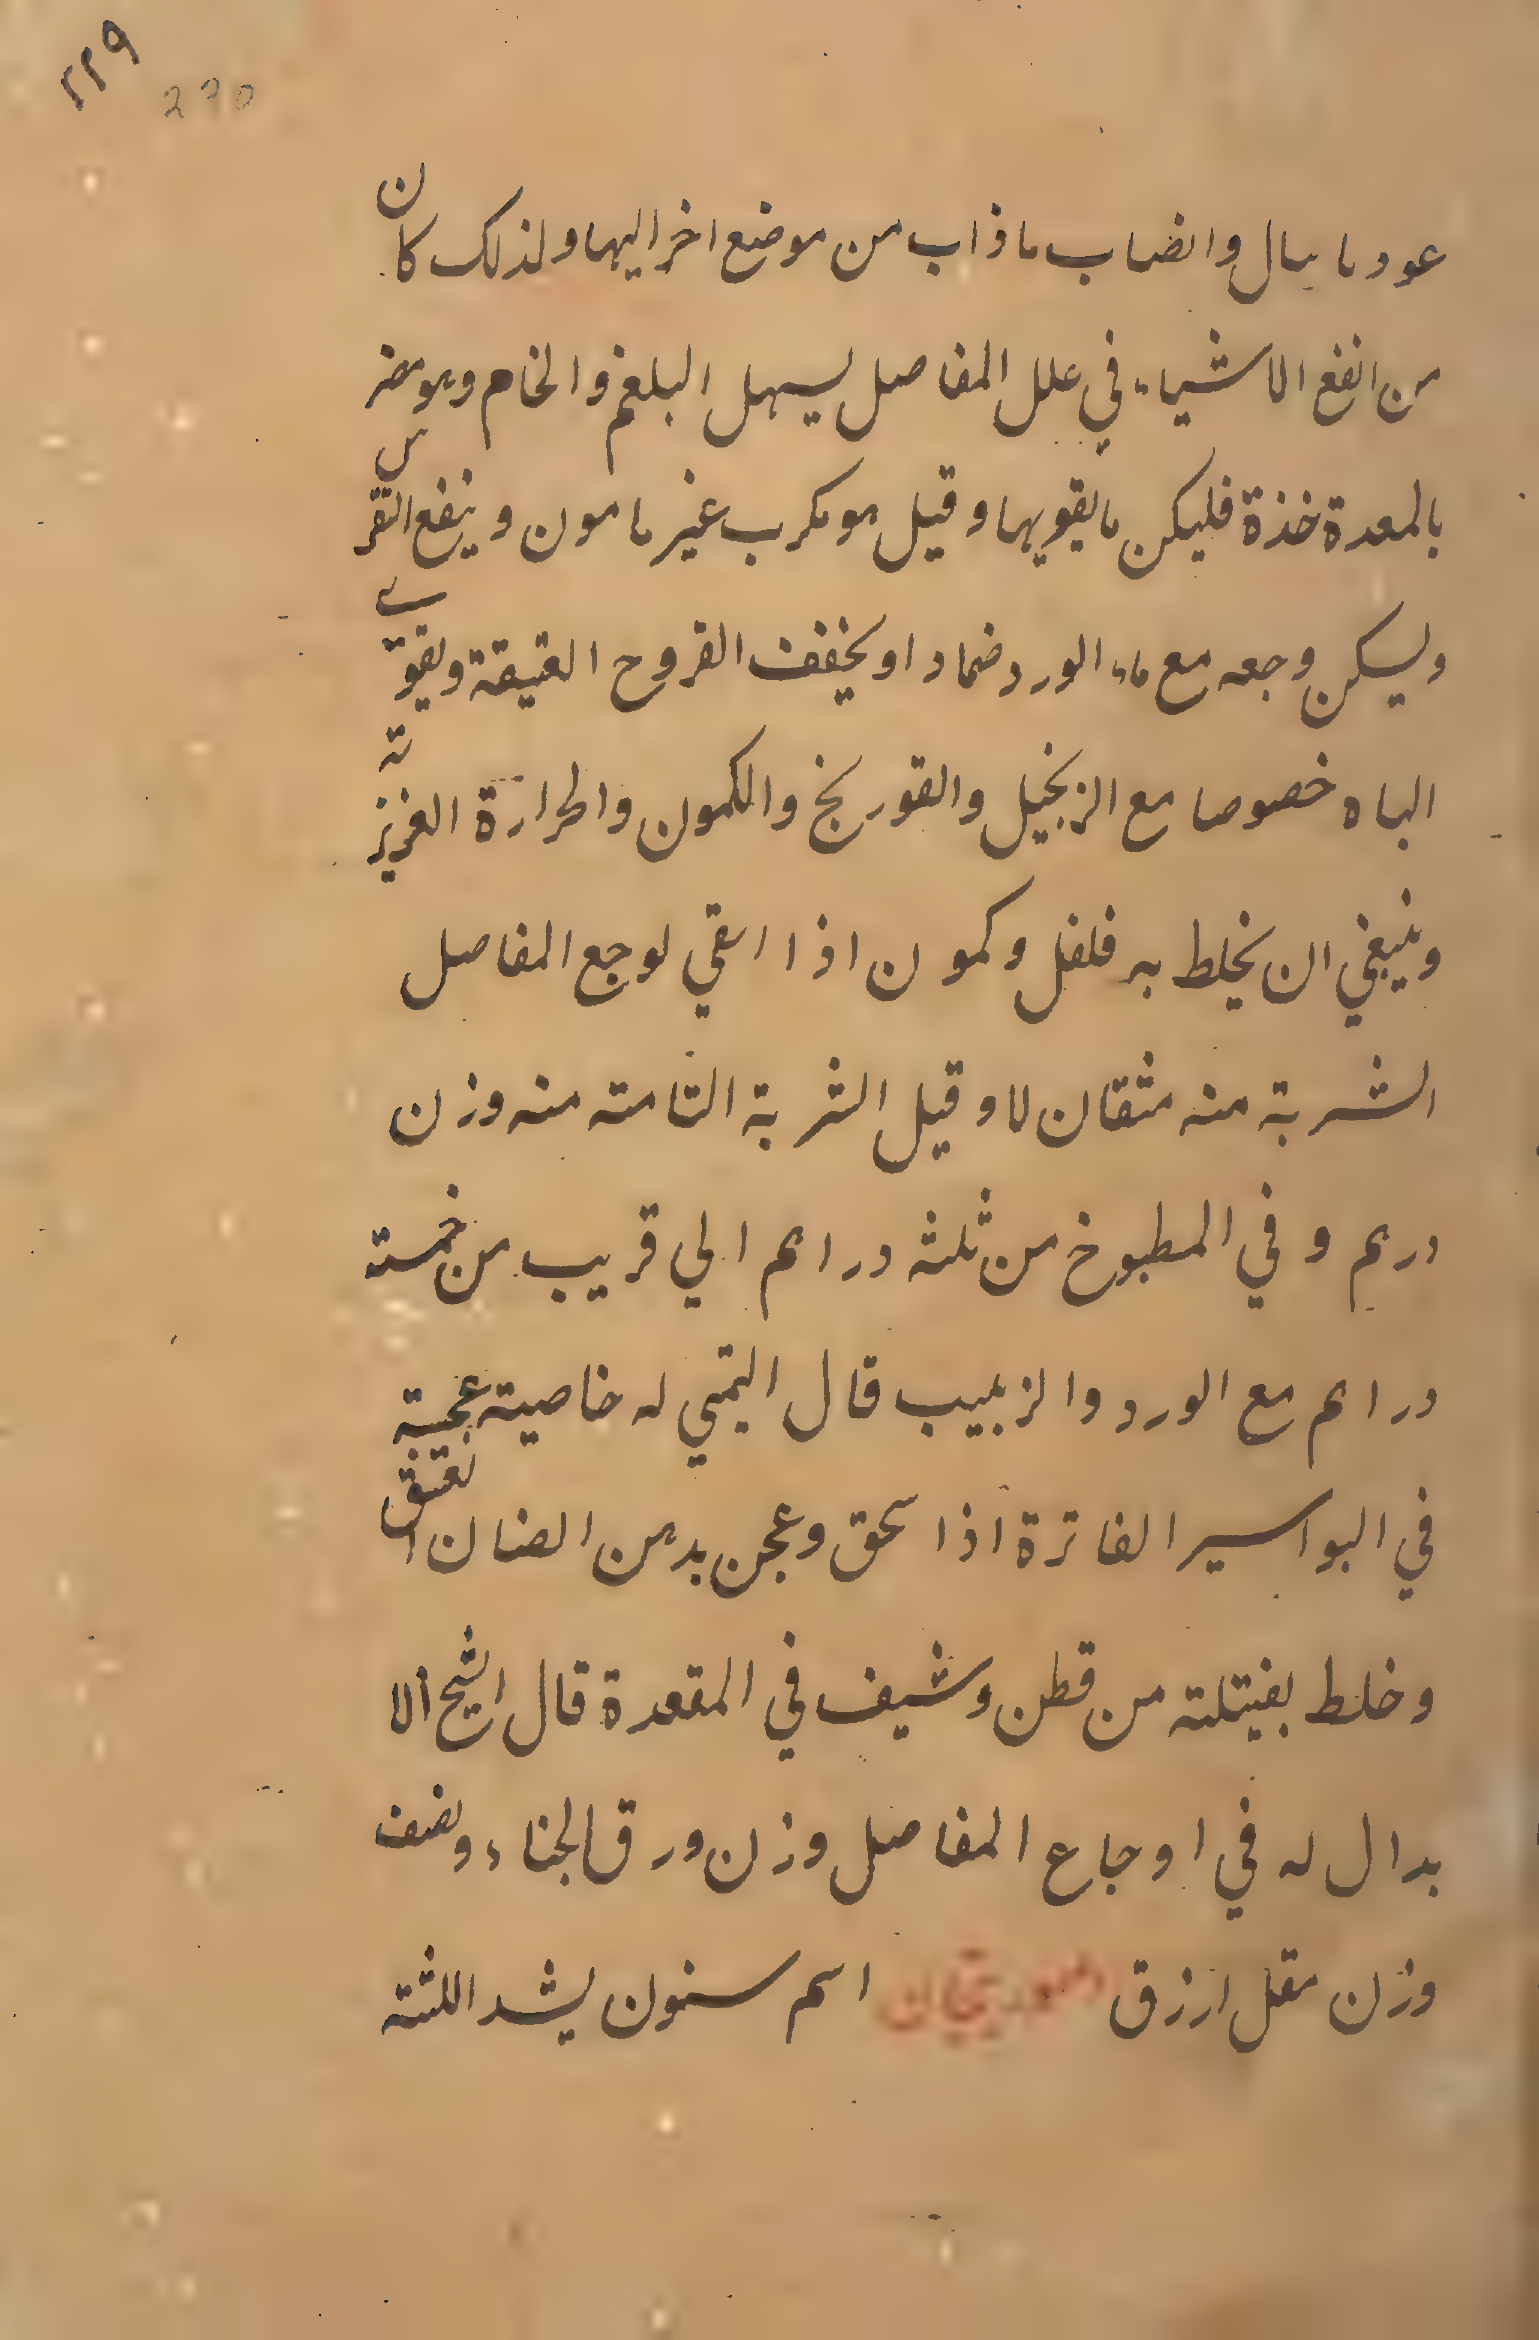 ٢٢٩
230
عود ما سال وانصاب ما ذاب من موضع اخر اليها ولذلك كان
من انفع الاشياء في علل المفاصل يسهل البلغم والخام وهو مضر
بالمعدة خذة فليكن ما يقويها وقيل هو مكرب غير مامون وينفع النقرس
ويسكن وجعه مع ماء الورد ضمادا ويخفف القروح العتيقة ويقوي
الباه خصوصا مع الزنجبيل والقورنخ والكمون والحرارة الغريزية
وينبغي ان يخلط به فلفل وكمون اذا اسقي لوجع المفاصل
الشربة منه مثقان لا وقيل الشربة التامته منه وزن
درهم وفي المطبوخ من ثلثه دراهم الي قريب من خمسته
دراهم مع الورد والزبيب قال التميمي له خاصيته عجيبته
في البواسير الفاترة اذا سحق وعجن بدهن الضان العتيق
وخلط بفيتلته من قطن وشيف في المقعدة قال الشيخ الا
بدال له في اوجاع المفاصل وزن ورق الحناء ونصف
وزن مقل ازرق اسم سنون يشد اللثته